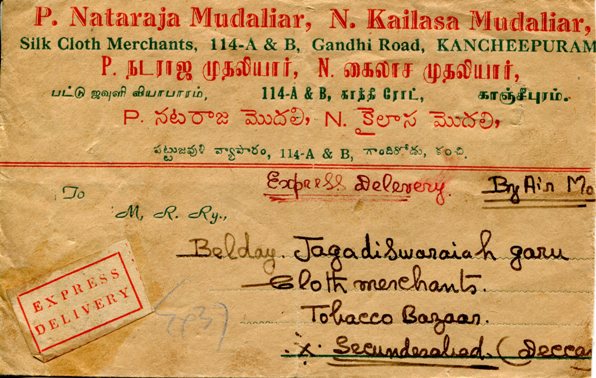 P. Nataraja Mudaliar, N. Kailasa Mudaliar,
Silk Cloth Merchants, 114-A & B, Gandhi Road, KANCHEEPURAM
P. நடராஜ முதலியார், N. கைலாச முதலியார்,
பட்டு ஜவுளி வியாபாரம், 114-A & B, காந்தி ரோட், காஞ்சீபுரம்.
P. నటరాజ మొదలి, N. కైలాస మొదలి,
పట్టుజవుళి వ్యాపారం, 114-A & B, గాంధిరోడు, కంచి.
Express Delevery. By Air Ma
To
M. R. Ry.,
Belday. Jagadiswaraiah garu
Cloth merchants.
Tobacco Bazaar.
Secunderabad. (Decca
EXPRESS
DELIVERY